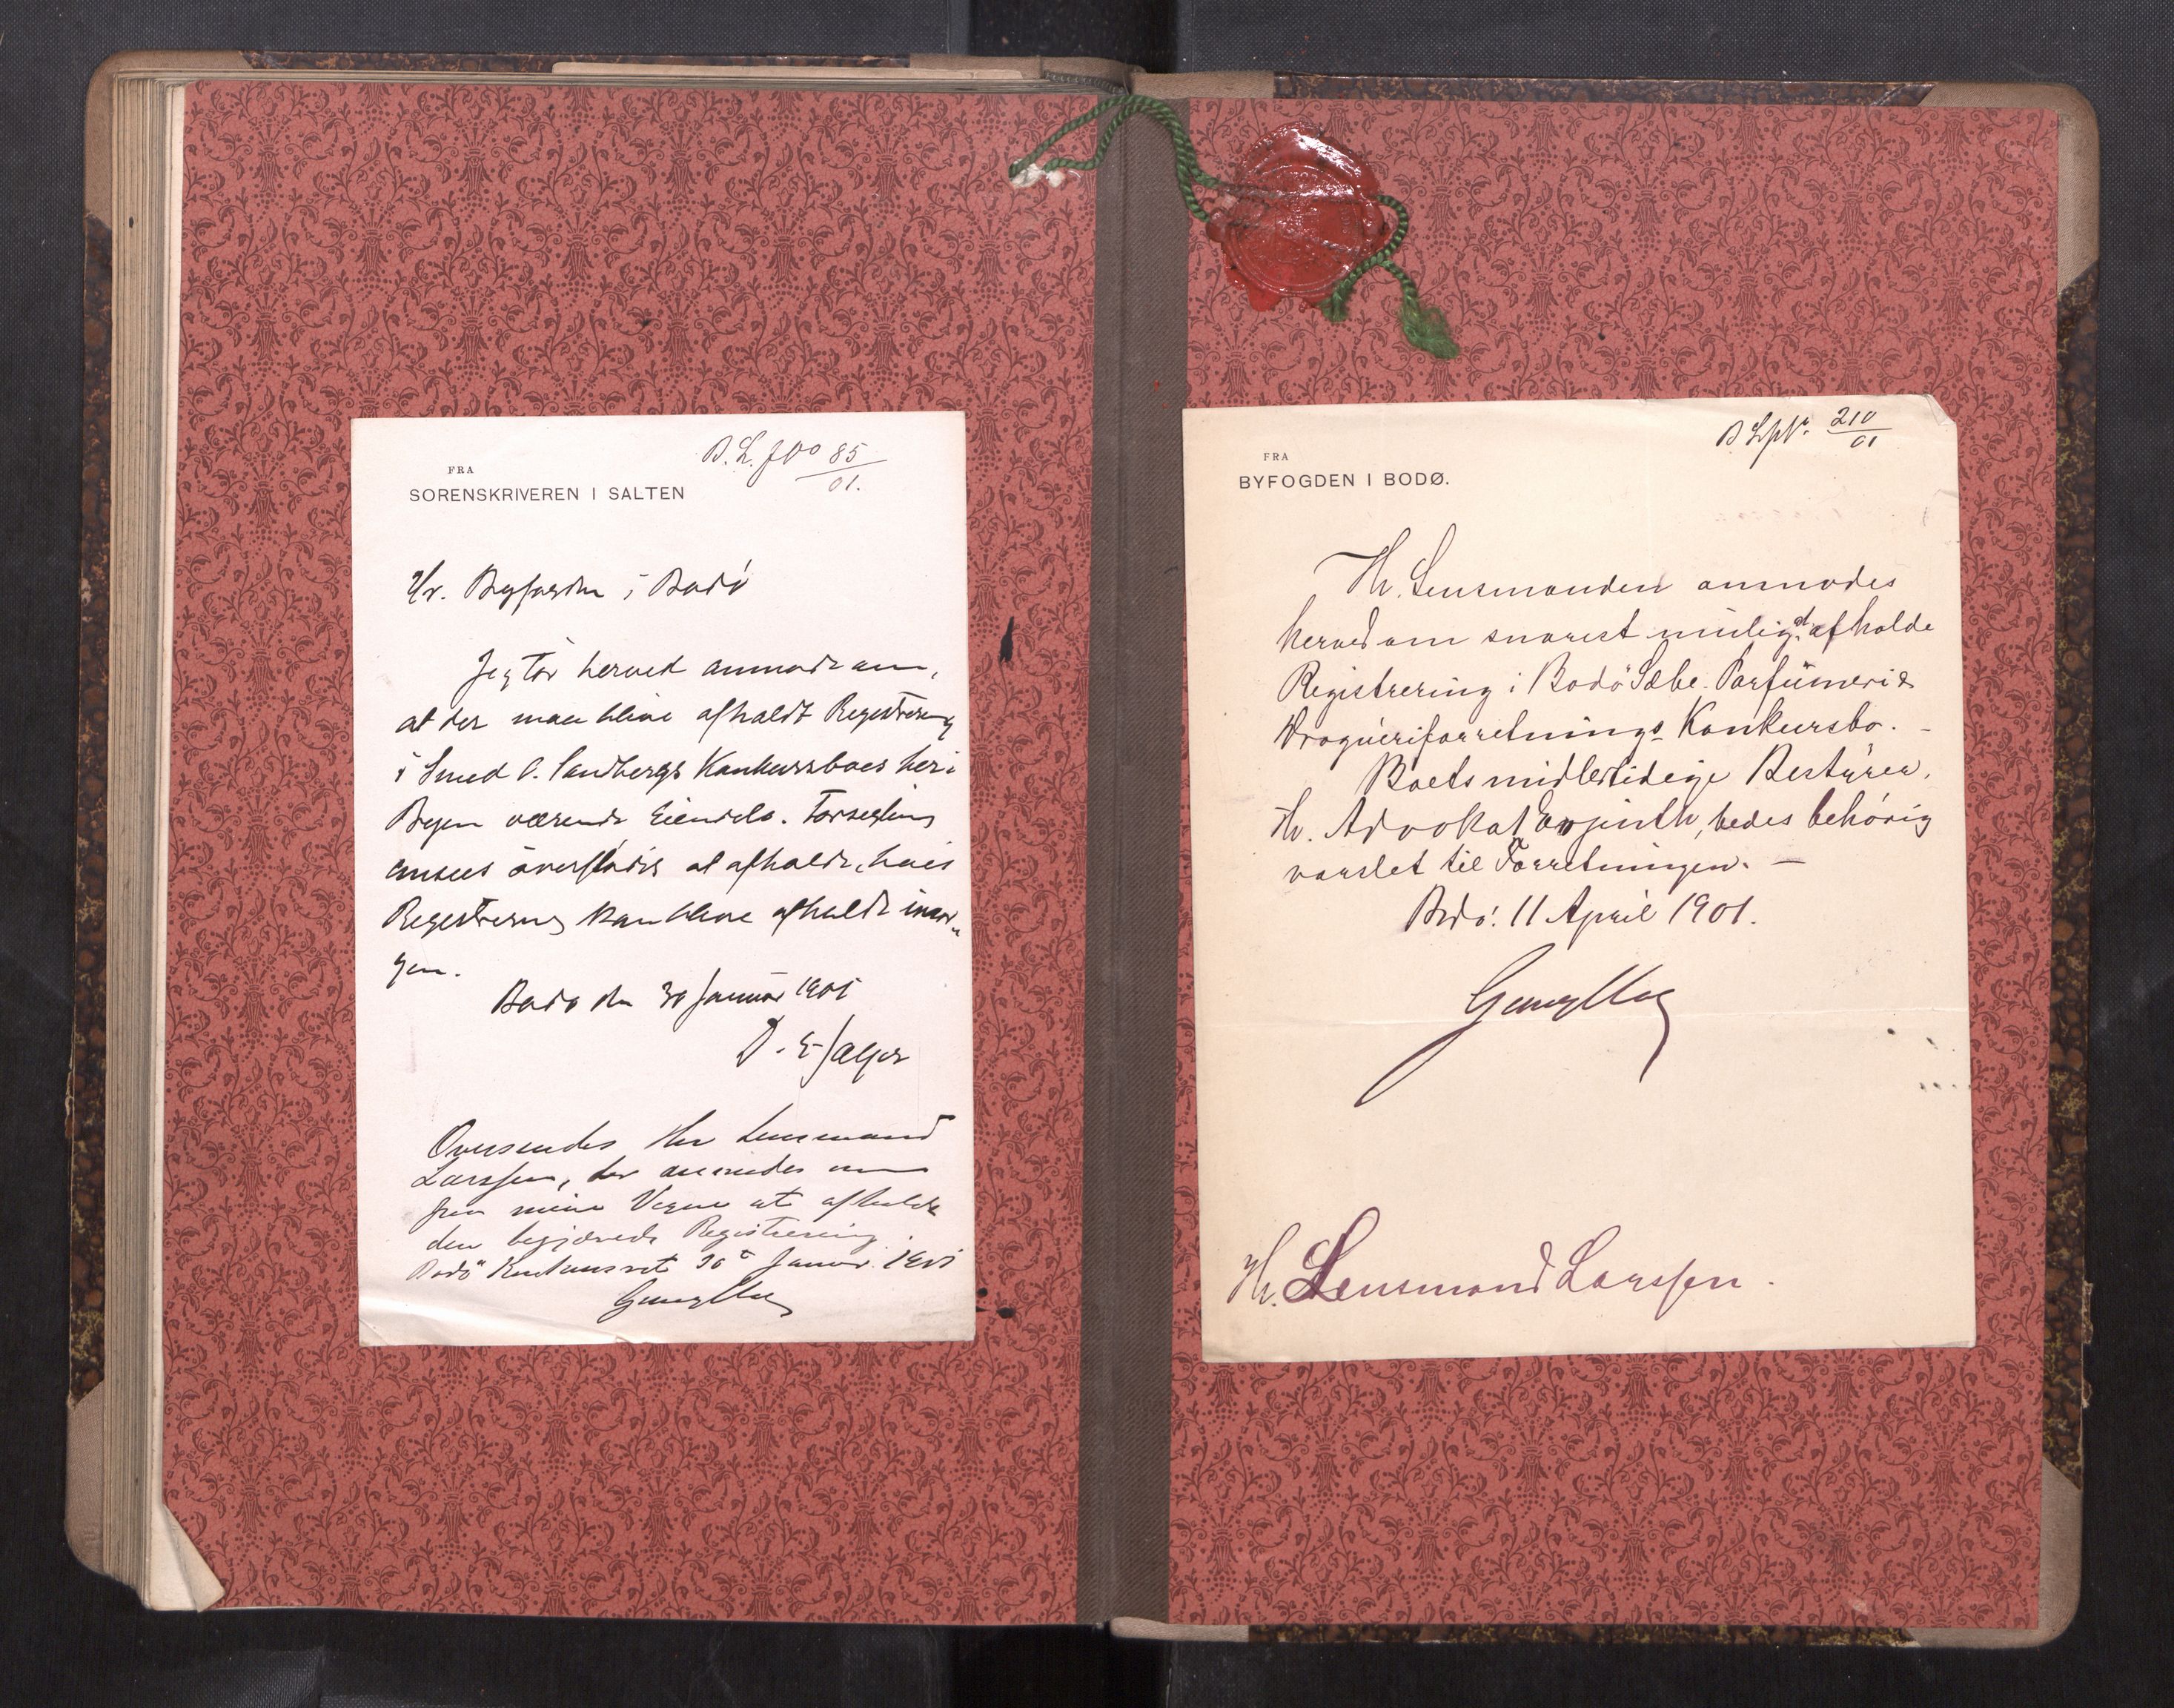 B. L. J No 85/01.
FRA
SORENSKRIVEREN I SALTEN
Hr. Byfogden i Bodø
Jeg tør herved anmode om,
at der maa blive afholdt Registrering
i Smed O. Sandbergs Konkursboes her i
Byen værende Eiendele. Forsegling
ansees overflødig at afholde, hvis
Registrering kan blive afholdt imor„
gen.
Bodø den 30 Januar 1901
Oversendes Hr Lensmand
Larssen, der anmodes om
paa mine Vegne at afholde
den begjærede Registrering
Bodø Konkursret 30 Januar 1901
B L 210/01
FRA
BYFOGDEN I BODØ.
Hr. Lensmanden anmodes
herved om snarest muligst afholde
Registrering i Bodø Sæbe. Parfümeri &
Droguériforretnings Konkursbo. –
Boets midlertidige Bestyrer,
Hr. Advokat bedes behørig
varslet til Forretningen. –
Bodø: 11 April 1901.
Hr. Lensmand Larssen.